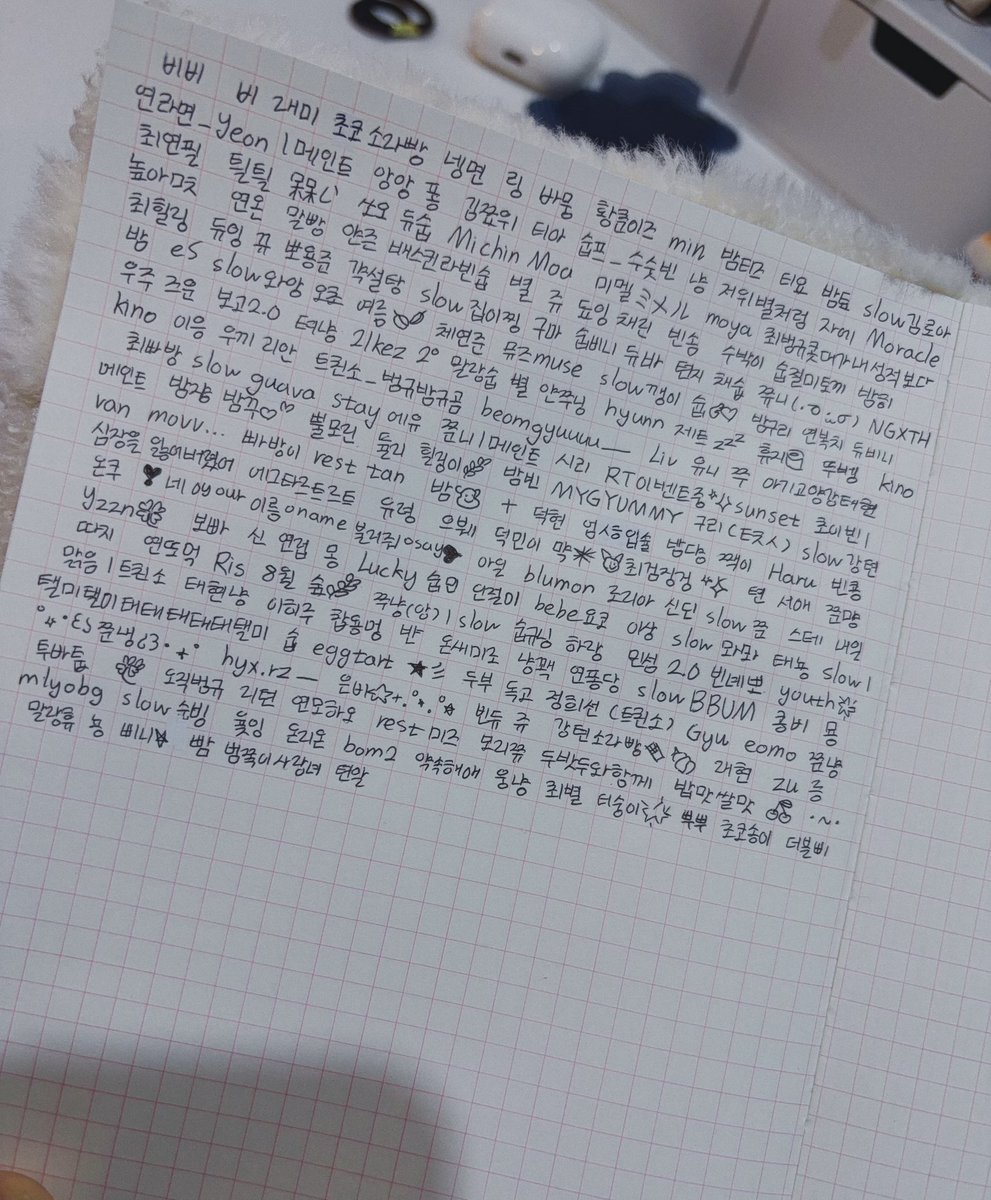 비비 비 래미 초코소라빵 넹면 링 바뭉 황쿰이즈 min 밤티즈 티요 밤됴 slow김로아
연라면_yeon 1메인트 앙앙 퐁 김쬬위 티아 숩프_수숫빈 냥 저위별처럼 자에 Moracle
최연필 틸틸 쏘오 듀숩 Michin Moa 미멜 moya 최범규콧대가내성적보다
높아 연온 말빵 얀즌 배스킨라빈숩 별 쥬 됴잉 채린 빈솜 수박이 숩절미토끼 방힝
최힐링 듀잉 뀨 뽀용쥰 걕설탕 slow집이찡 구마 숩삐니 듀바 텬지 채숩 쮸니 NGXTH
밤 es slow와앙 오초 여름 채연준 뮤즈muse slow깽이 숩 방규리 연복치 듀비니
우주 즈운 보고2.0 텨냥 2lkez 2° 말랑숩 별 안쭈닝 hyunn 제트 zzZ 휴지 뚜벵 kino
kino 이응 우끼 리안 트친소_범규밤규곰 beomgyuuuu— Liv 유니 쭉 아기고양강태현
최빠방 slow guava stay 에유 쭌니1메인트 시리 RT이벤트중 sunset 초이빈1
메인트 밤쟝 밤꾸♡ 뿔모린 듈리 휠정이 밤빈 MYGYUMMY 구리(트친소) slow강텬
van movv... 빠방이 rest tan 밤 + 덕현 엄성입술 뱜댱 쩍이 Haru 빈콩
심장을 잃어버렸어 에그타르트르트 유령 으붸 덕민이 먁 최검장검 텬 서애 쭌먕
온쿠 ♥네 oyour 이름oname 불러줘osay♥ 아일 blumon 로리아 신딘 slow쭌 스테 내일
yzzn 보빠 신 연겁 뭉 Lucky 숩민 인절미 bebe요코 이상 slow 와와 태뇽 slow1
따지 연또먹 Ris 8월 숩 쭉냥(앙)1slow 숩규싱 하랑 민섬 2.0 빈네뽀 youth
맑음1트친소 태현냥 이희주 캅동멍 반 돈새미로 냥꽥 연퐁당 slowBBUM 홍비 몽
텔미텔미태태태태태텔미 숩 eggtart ★ 두부 독고 정희선(트친소) Gyu eomo 쭌냥
εs쭌냉c3 hyx.rz— 은바☆ 빈듀 쥬 강텬소라빵 래현 zu 릉
투바툽 오직범규 리텬 연모하오 rest미즈 모리쮸 두밧두와함께 밥맛쌀맛
mlyobg slow숙빙 윷잉 온리온 bom2 약속해애 웅냥 최별 터숭이 뿌뿌 초코송이 더블삐
말랑흎 뇽 삐니 빰 범쭉이사랑녀 텬알